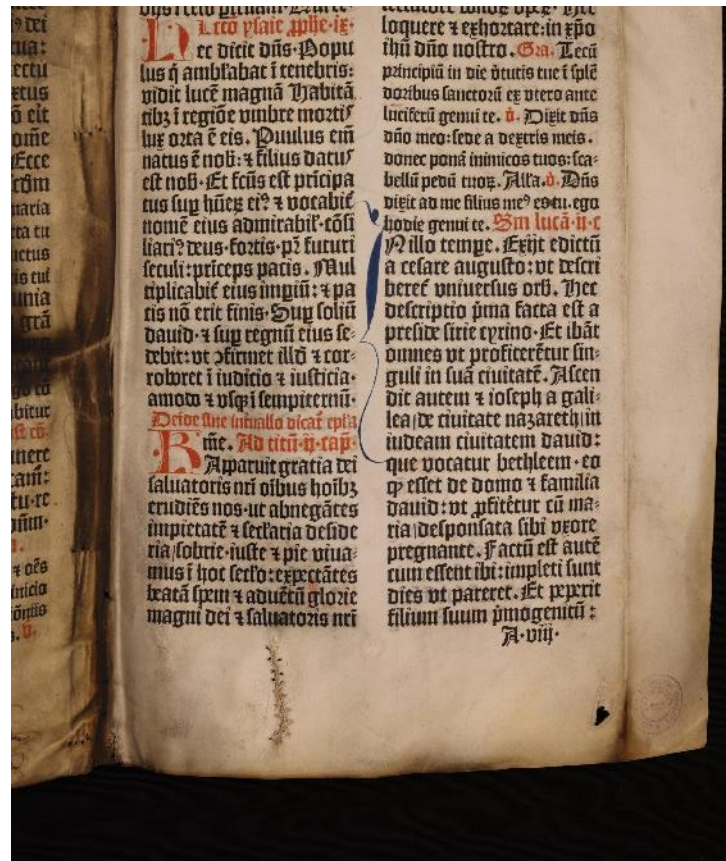 Lcco ysaie ꝓphe·ix·
Hec dicit dñs·Popu
lus q̃ amblabat ĩ tenebris:
vidit lucẽ magnã Habitã
tibꝫ ĩ regiõe vmbre mortis
lux orta ẽ eis. Puulus em̃
natus ẽ nob̃: ⁊ filius datus
est nob̃·Et fcũs est prĩcipa
tus sup hũeꝝ eiꝰ ⁊ vocabit̃
nomẽ eius admirabil̃·cõsi
liariꝰ deus·fortis·pr̃ futuri
seculi: prĩceps pacis. Mul
tiplicabit̃ eius impiũ: ⁊ pa
cis nõ erit finis·Sup soliũ
dauid·⁊ sup regnũ eius se⸗
debit: vt ↄfirmet illd̃ ⁊ cor⸗
roboret ĩ iudicio ⁊ iusticia·
amodo ⁊ vsqꝫ ĩ sempiternũ·
Deĩde sine intuallo dicat̃ epl̃a
Bm̃e. Ad titũ·ij·cap̃·
Apparuit gratia dei
saluatoris nr̃i oĩbus hoĩbꝫ
erudiẽs nos·ut abnegãtes
impietatẽ ⁊ secl̃aria deside
ria/sobrie·iuste ⁊ pie viua⸗
mus ĩ hoc secl̃o: expectãtes
beatã spem ⁊ aduẽtũ glorie
magni dei ⁊ saluatoris nr̃i
loquere ⁊ exhortare: in xp̃o
ihũ dño nostro. Gra. Tecũ
principiũ in die v̓tutis tue ĩ splẽ
doribus sanctorũ ex vtero ante
luciferũ genui te. v̓. Dixit dñs
dño meo: sede a dextris meis.
donec ponã inimicos tuos: sca⸗
bellũ pedũ tuoꝝ. Alla. v̓. Dñs
dixit ad me filius meꝰ es tu. ego
hodie genui te. Sm lucã·ij·c
IN illo tempe. Exijt edictũ
a cesare augusto: vt descri
beret̃ vniuersus orb̃. Hec
descriptio p̃ma facta est a
preside sirie cyrino·Et ibãt
omnes vt profiterẽtur sin⸗
guli in suã ciuitatẽ. Ascen
dit autem ⁊ ioseph a gali⸗
lea/de ciuitate nazareth/in
iudeam ciuitatem dauid:
que vocatur bethleem·eo
ꝙ esset de domo ⁊ familia
dauid: vt ꝓfitẽtur cũ ma⸗
ria/desponsata sibi vxore
pregnante. Factũ est autẽ
cum essent ibi: impleti sunt
dies vt pareret. Et peperit
filium suum p̃mogenitũ:
A·viij·